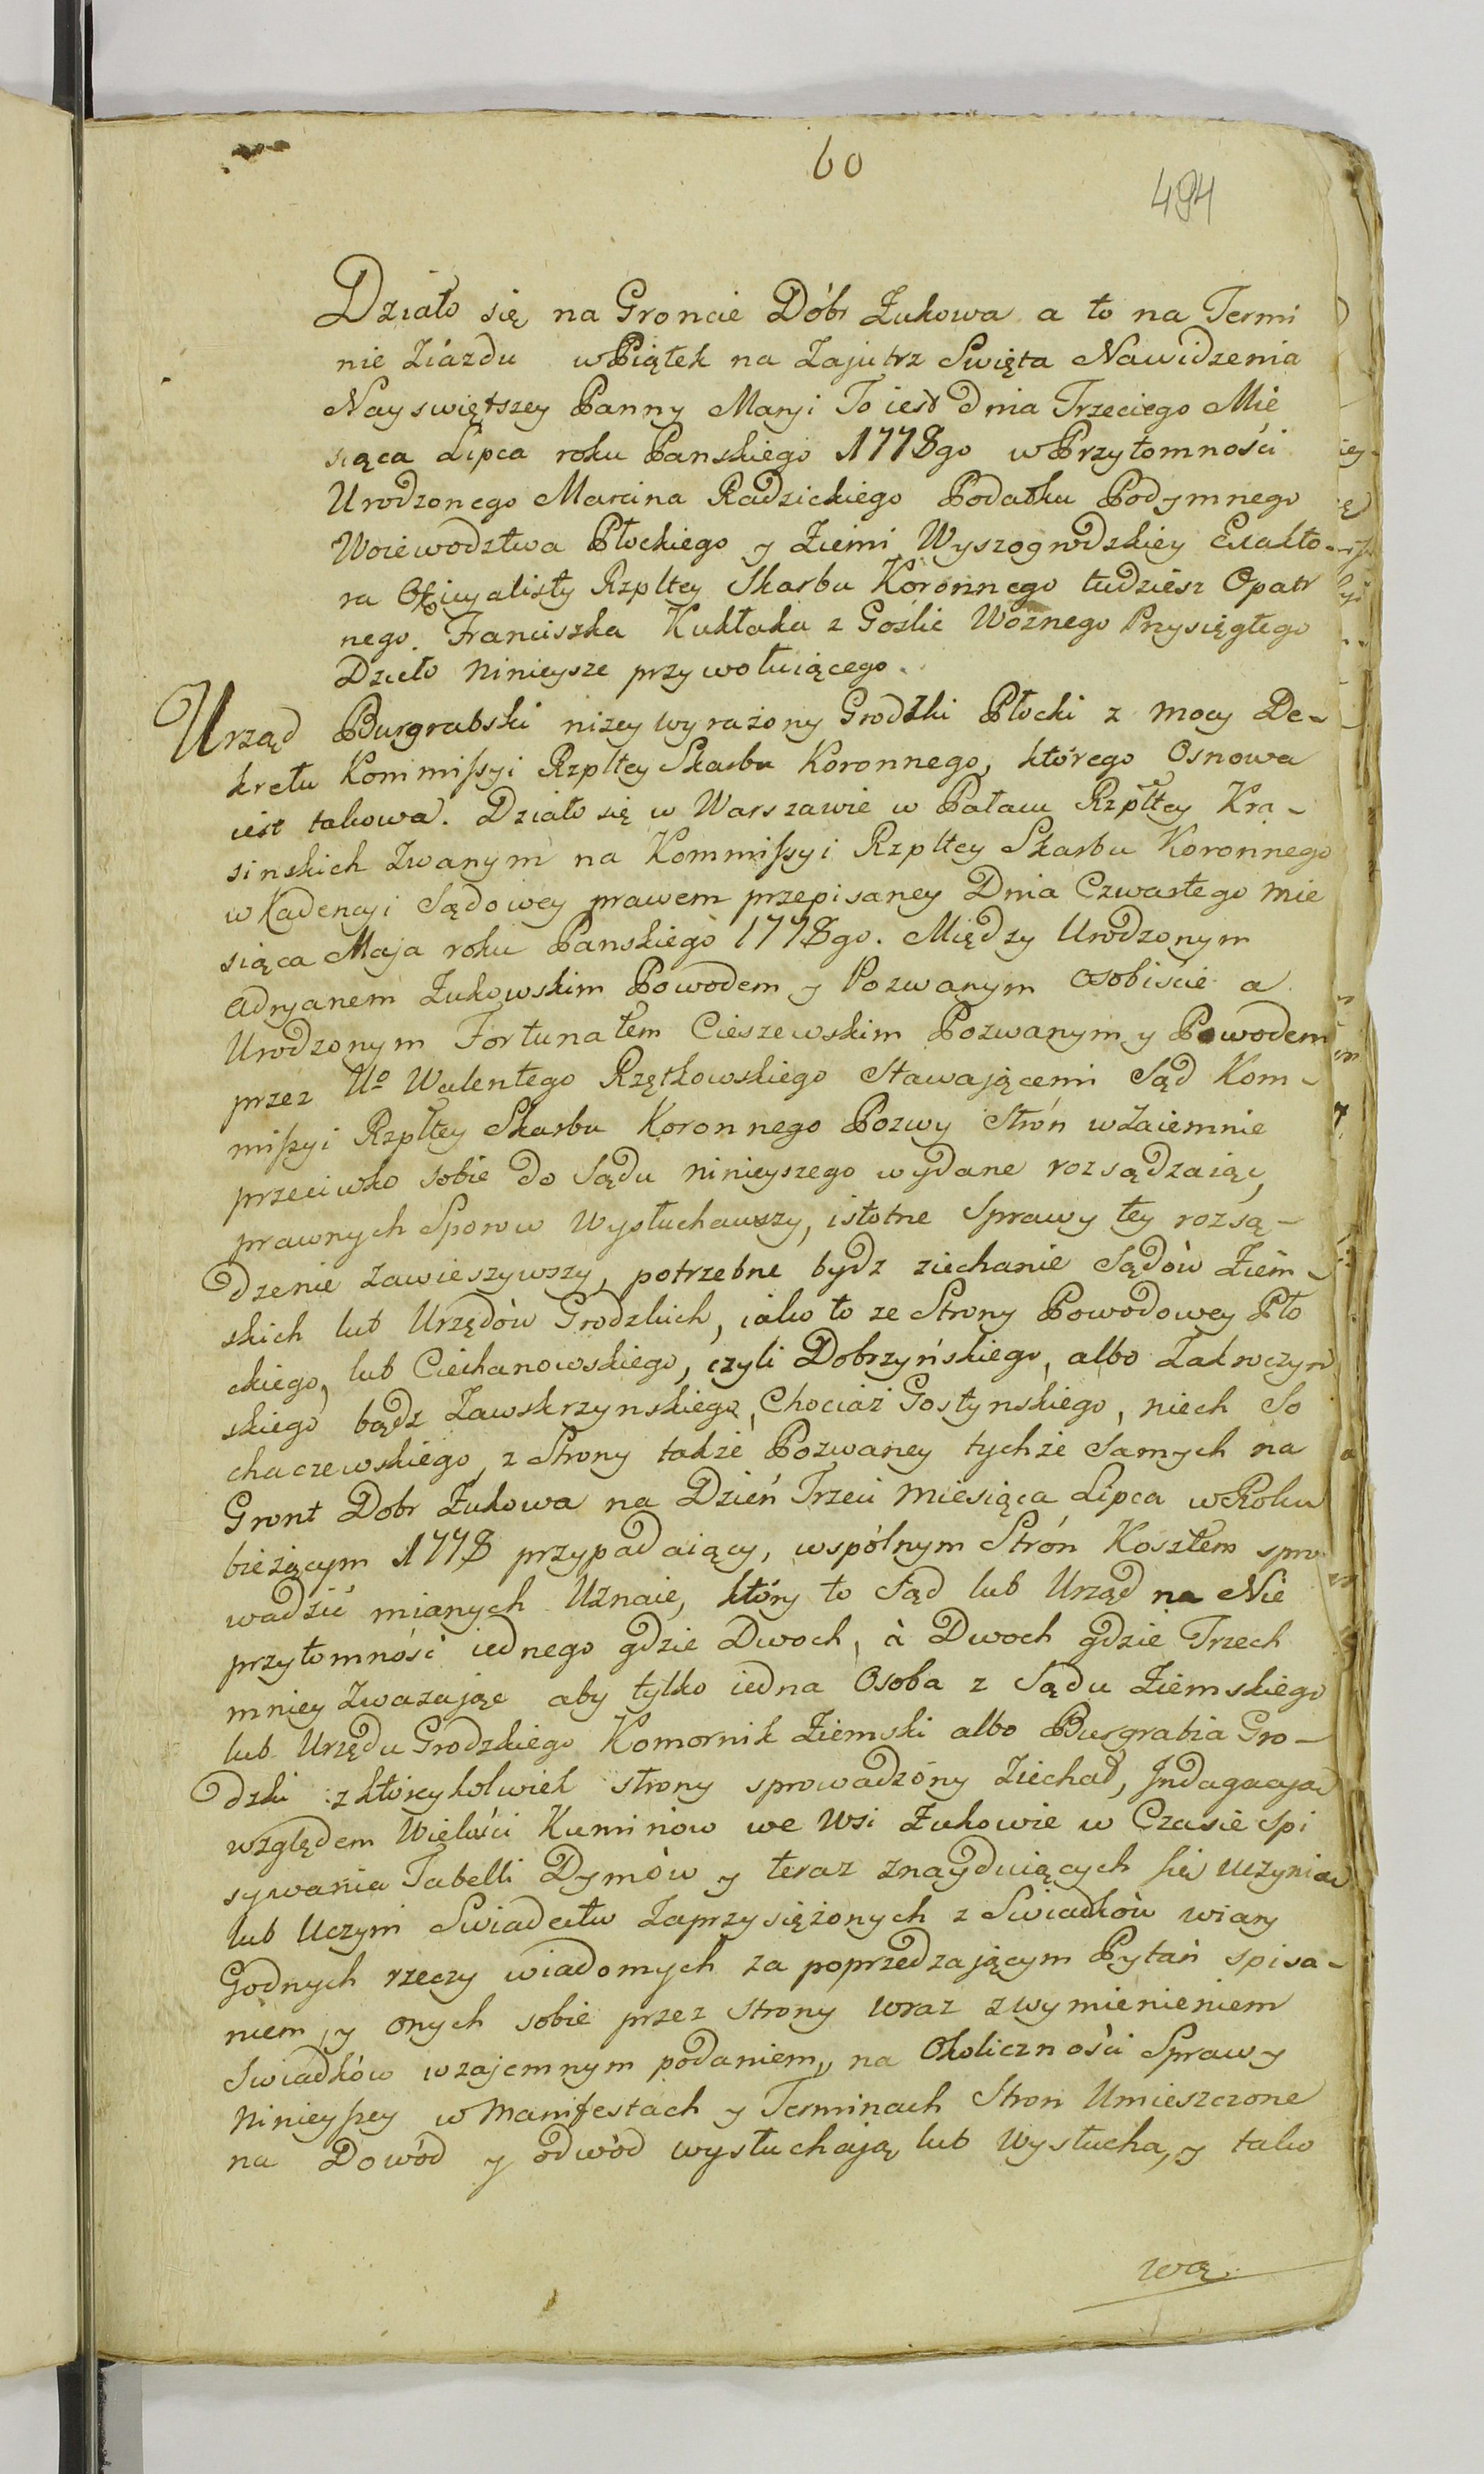 60
494
Działo się na Groncie Dóbr Żukowa a to na Termi
nie Ziazdu w Piątek na Zajutrz Swięta Nawidzenia
Nayswiętszey Panny Maryi To iest dnia Trzeciego Mie
siąca Lipca roku Panskiego 1778go w Przytomności
Urodzonego Marcina Radzickiego Podatku Podymnego
Woiewodztwa Płockiego y Ziemi Wyszogrodzkiey Exakto-
ra Oficyalisty Rzpltey Skarbu Koronnego tudziesz Opatr
nego Franciszka Kukłaka z Goślic Woznego Przysięgłego
Dzieło ninieysze przywołuiącego.
Urząd Burgrabski niżey wyrażony Grodzki Płocki z mocy De-
kretu Kommißyi Rzpltey Skarbu Koronnego, którego Osnowa
iest takowa. Działo się w Warszawie w Pałacu Rzpltey Kra-
sinskich Zwanym na Kommißyi Rzpltey Skarbu Koronnego
w Kadencyi Sądowey prawem przepisaney Dnia Czwartego mie
siąca Maja roku Panskiego 1778go. Między Urodzonym
Adryanem Żukowskim Powodem y Pozwanym osobiscie a
Urodzonym Fortunatem Cieszewskim Pozwanym y Powodem
przez Uo Walentego Rzętkowskiego Stawającemi Sąd Kom-
mißyi Rzpltey Skarbu Koronnego Pozwy Strón wzaiemnie
przeciwko sobie do Sądu ninieyszego wydane rozsądzaiąc,
prawnych Sporow Wysłuchawszy, istotne Sprawy tey rozsą-
dzenie zawieszywszy, potrzebne bydz ziechanie Sądów Ziem-
skich lub Urzędów Grodzkich, iako to ze Strony Powodowey Pło
ckiego, lub Ciechanowskiego, czyli Dobrzyńskiego, albo Zakroczyń
skiego bądz Zawskrzynskiego, Chociaż Gostynskiego, niech So
chaczewskiego, z Strony także Pozwaney tychże Samych na
Gront Dobr Żukowa na Dzień Trzeci Miesiąca Lipca w Roku
bieżącym 1778 przypadaiący, wspólnym Strón Kosztem spro
wadzić mianych Uznaie, który to Sąd lub Urząd na Nie
przytomność iednego gdzie Dwoch, à Dwoch gdzie Trzech
mniey Zwazając aby tylko iedna Osoba z Sądu Ziemskiego
lub Urzędu Grodzkiego Komornik Ziemski albo Burgrabia Gro-
dzki z któreykolwiek strony sprowadzóny Ziechał, Indagacyą
względem Wielości Kuminów we Wsi Żukowie w Czasie Spi
sywania Tabelli Dymów y teraz znayduiących się uczynią
lub Uczyni Swiadectw Zaprzysiężonych z Swiadków wiary
Godnych rzeczy wiadomych za poprzedzającym Pytań spisa-
niem, y onych sobie przez Strony wraz z wymienieniem
Swiadków wzajemnym podaniem, na Okoliczności Sprawy
Ninieyßey w Manifestach y Terminach Stron Umieszczone
na Dowód y odwód wysłuchają lub Wysłucha, y tako
wą.